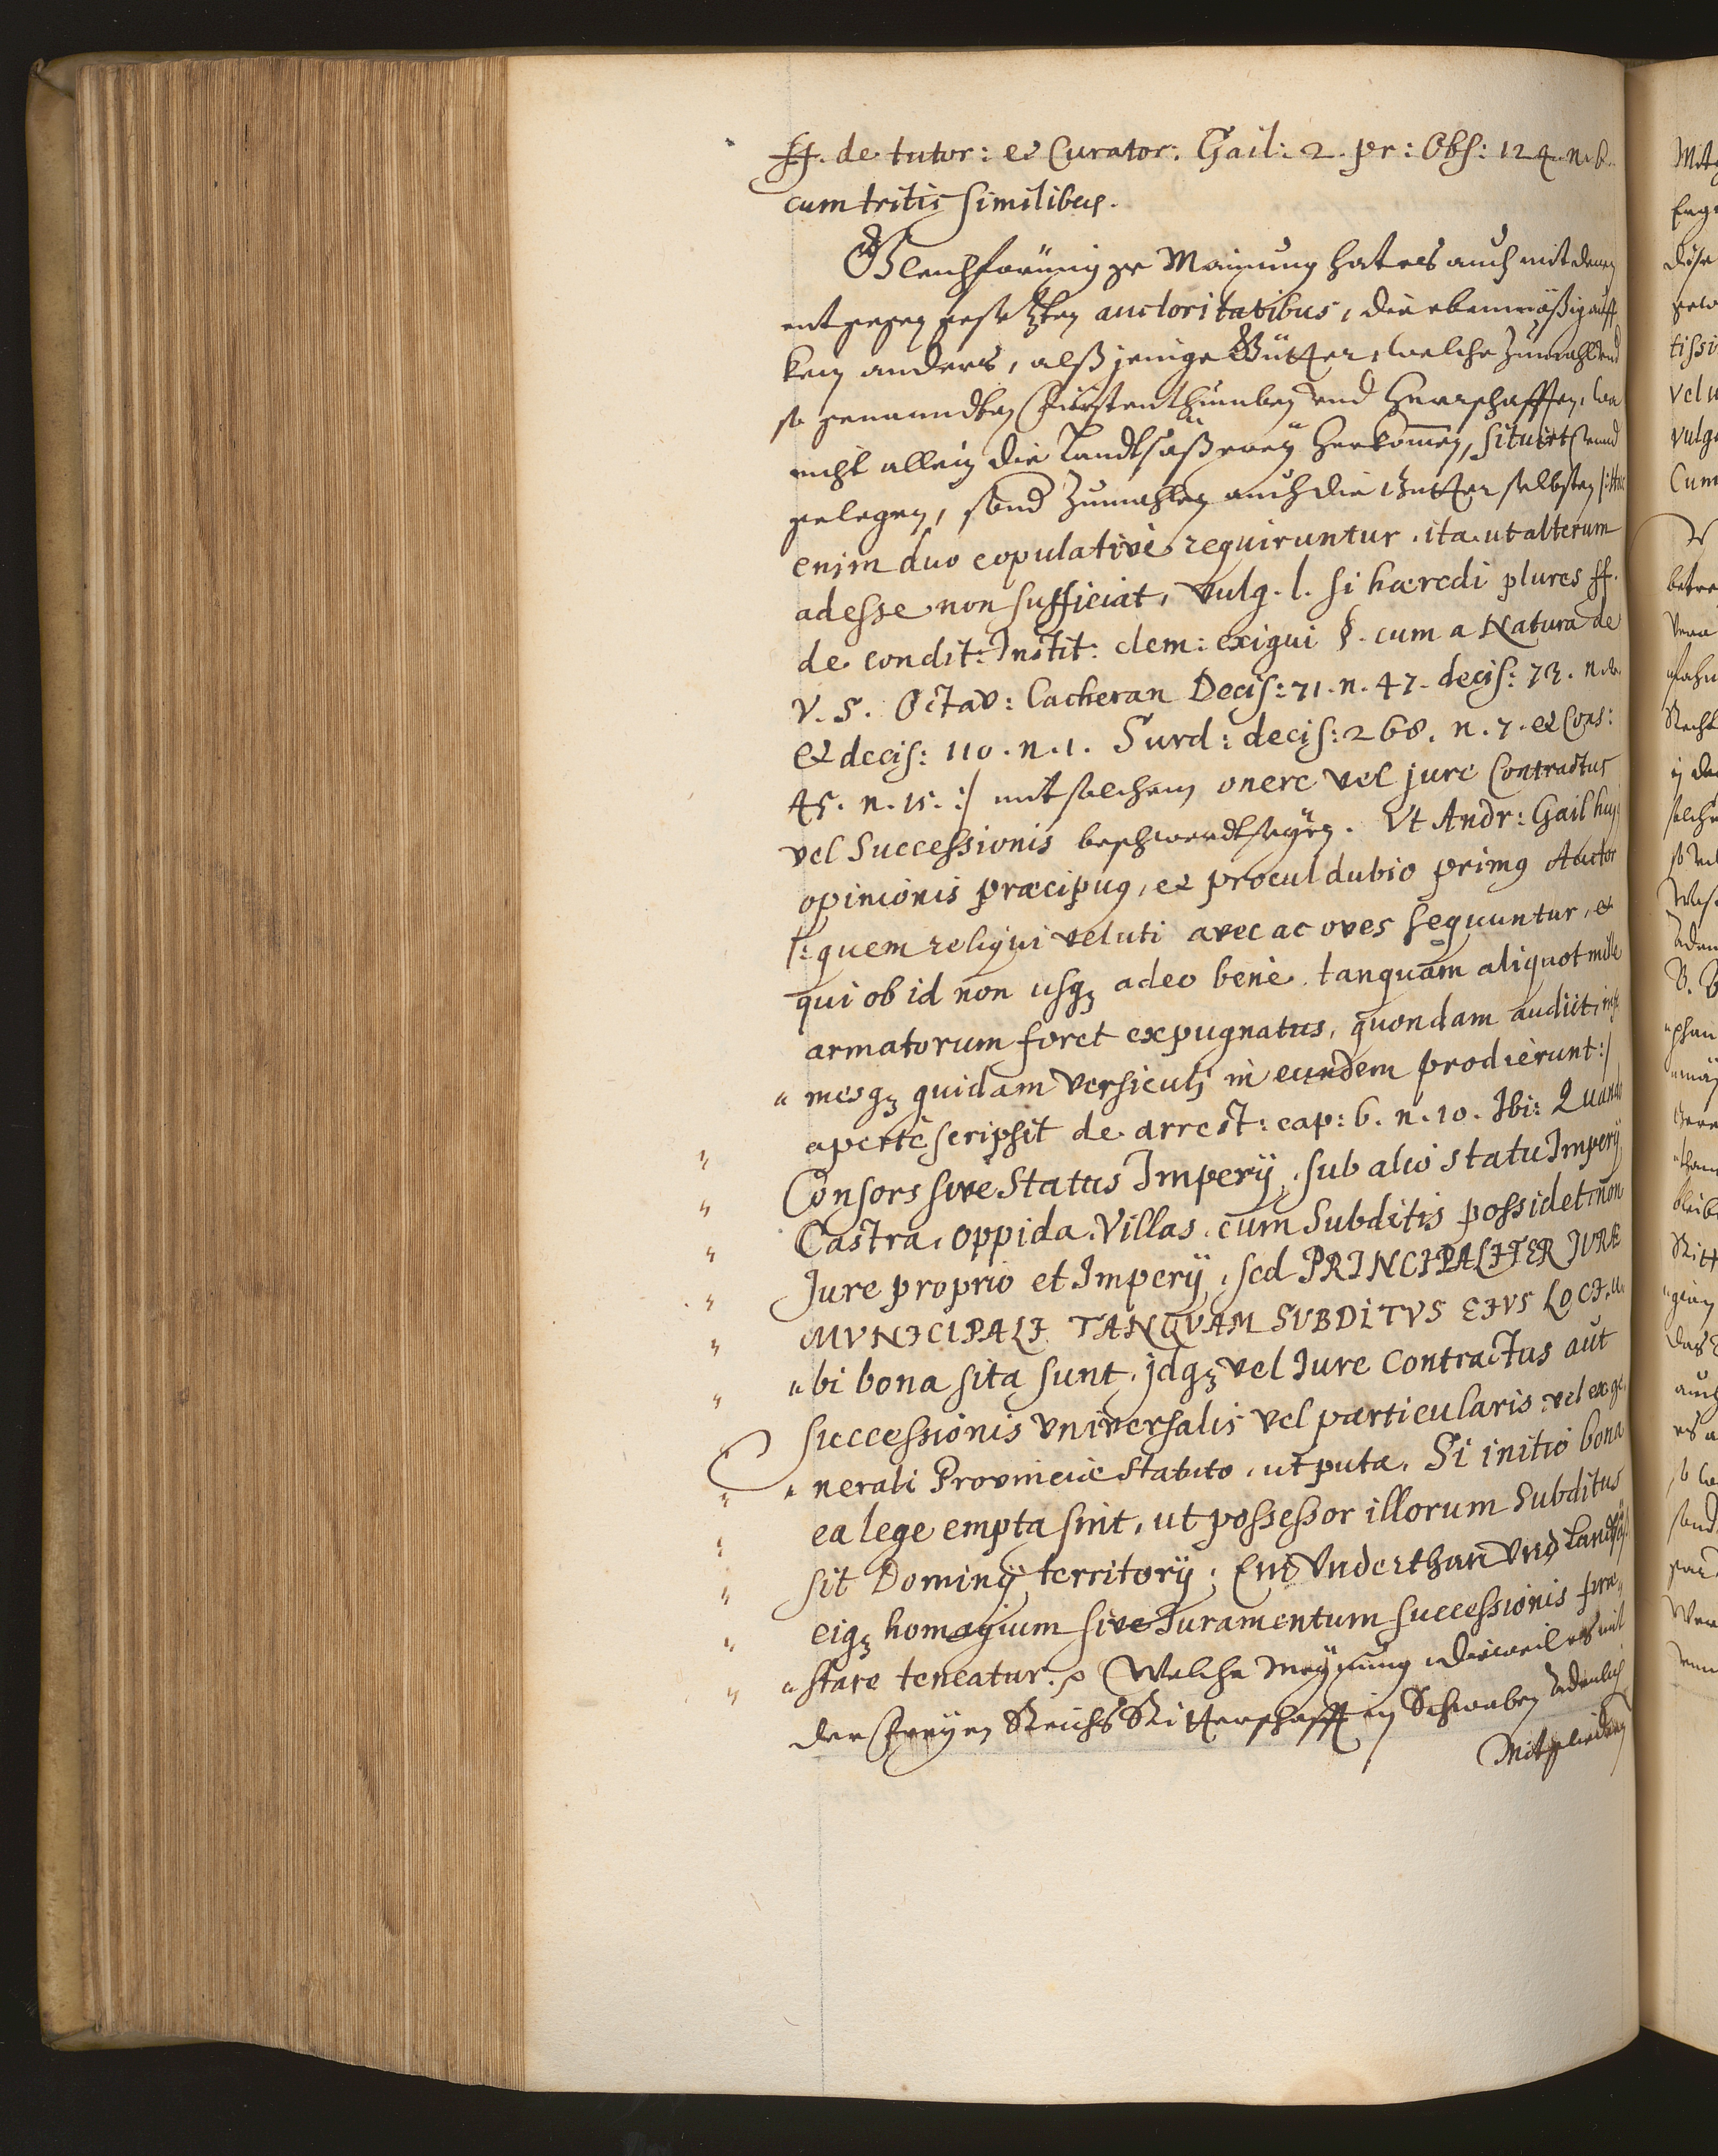 ff. de tutor: et Curator. Gail: 2. pr: Obs: 124. n. 6.
cum tritis similibus.
Gleichförmige Mainung hat es auch mit denen
entgegen gesetzten auctoritatibus, die ebenmäßig auff
kein anders, alß jenige Gütter, welche zumahl Vnd
so genanndten Fürstenthumben Vnd Herrschafften, wa
nicht allein die Landtsäßerey Herkom̄en, situirt Vnnd
gelegen, sond zumahlen auch die Gütter selbsten /: Hæc
enim duo copulativè requiruntur, ita ut alterum
adesse non sufficiat, vulg. l. si hæredi plures ff.
de condit: Instit: clem: exigui §. cum a Natura de
V. S. Octav: Cacheran Decis: 71. n. 47. decis: 73. n. 8.
et decis: 110. n. 1. Surd: decis: 268. n. 7. et Cons:
45. n. 15. :/ mit solchem onere vel jure Contractus
vel Successionis beschwerdt seyen. Vt Andr: Gail huj
opinionis præcipuus, et procul dubio primus Auctor
/: quem reliqui veluti avec ac oves sequuntur, et
qui ob id non usqꝫ adeo benè, tanquam aliquot mille
armatorum foret expugnatus, quondam audiit, inf
" mesqꝫ quidam versiculj in eundem prodierunt :/
apertè scripsit de arrest: cap: 6. n. 10. Ibi: Quando
Consors sive Status Imperÿ, sub alio statu Imperÿ
Castra, oppida, Villas, cum Subditis possidet non
Jure proprio et Imperÿ, sed PRINCIPALITER JURE
MUNICIPALI TANQUAM SUBDITVS EIVS LOCI, u
" bi bona sita sunt, jdqꝫ vel Jure Contractus aut
successionis vniversalis vel particularis, vel ex ge
" nerali Provinciæ statuto, ut puta, Si initio bona
ea lege empta sint, ut possessor illorum Subditus
sit Dominj territorÿ; Ein Vnderthan Vnd Landtsäß
eiqꝫ homagium sive Juramentum successionis præ
" stare teneatur. Welche Meÿnung, dieweil es mit
der Freÿen Reichs Ritterschafft in Schwaben Adenlich
Mitgliedern